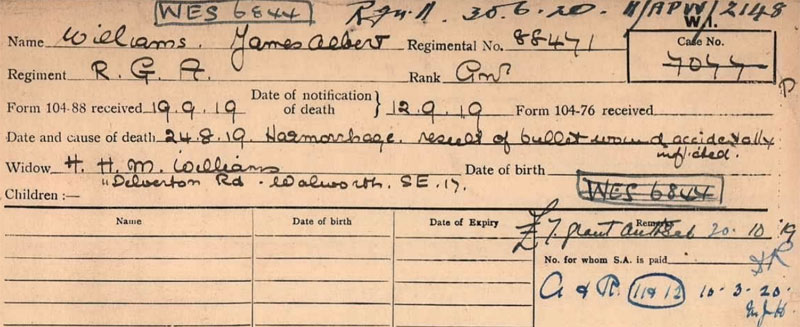 WES 6844 30.6.20. 11/APW/2148
W.I.
Name Williams. James Albert Regimental No. 88471 Case No.
Regiment R. G. A. Rank Gnr 7077
Form 104-88 received 19.9.19 Date of notification of death } 12.9.19 Form 104-76 received
Date and cause of death 24.8.19. Haemorrhage. result of bullet wound accidentally
inflicted.
Widow H. H. M. Williams Date of birth
Delverton Rd. Walworth. SE. 17. WES 6844
Children :—
Name Date of birth Date of Expiry Remarks
T. grant 20.10.19
No. for whom S.A. is paid
A & R. 11812 10.3.20.